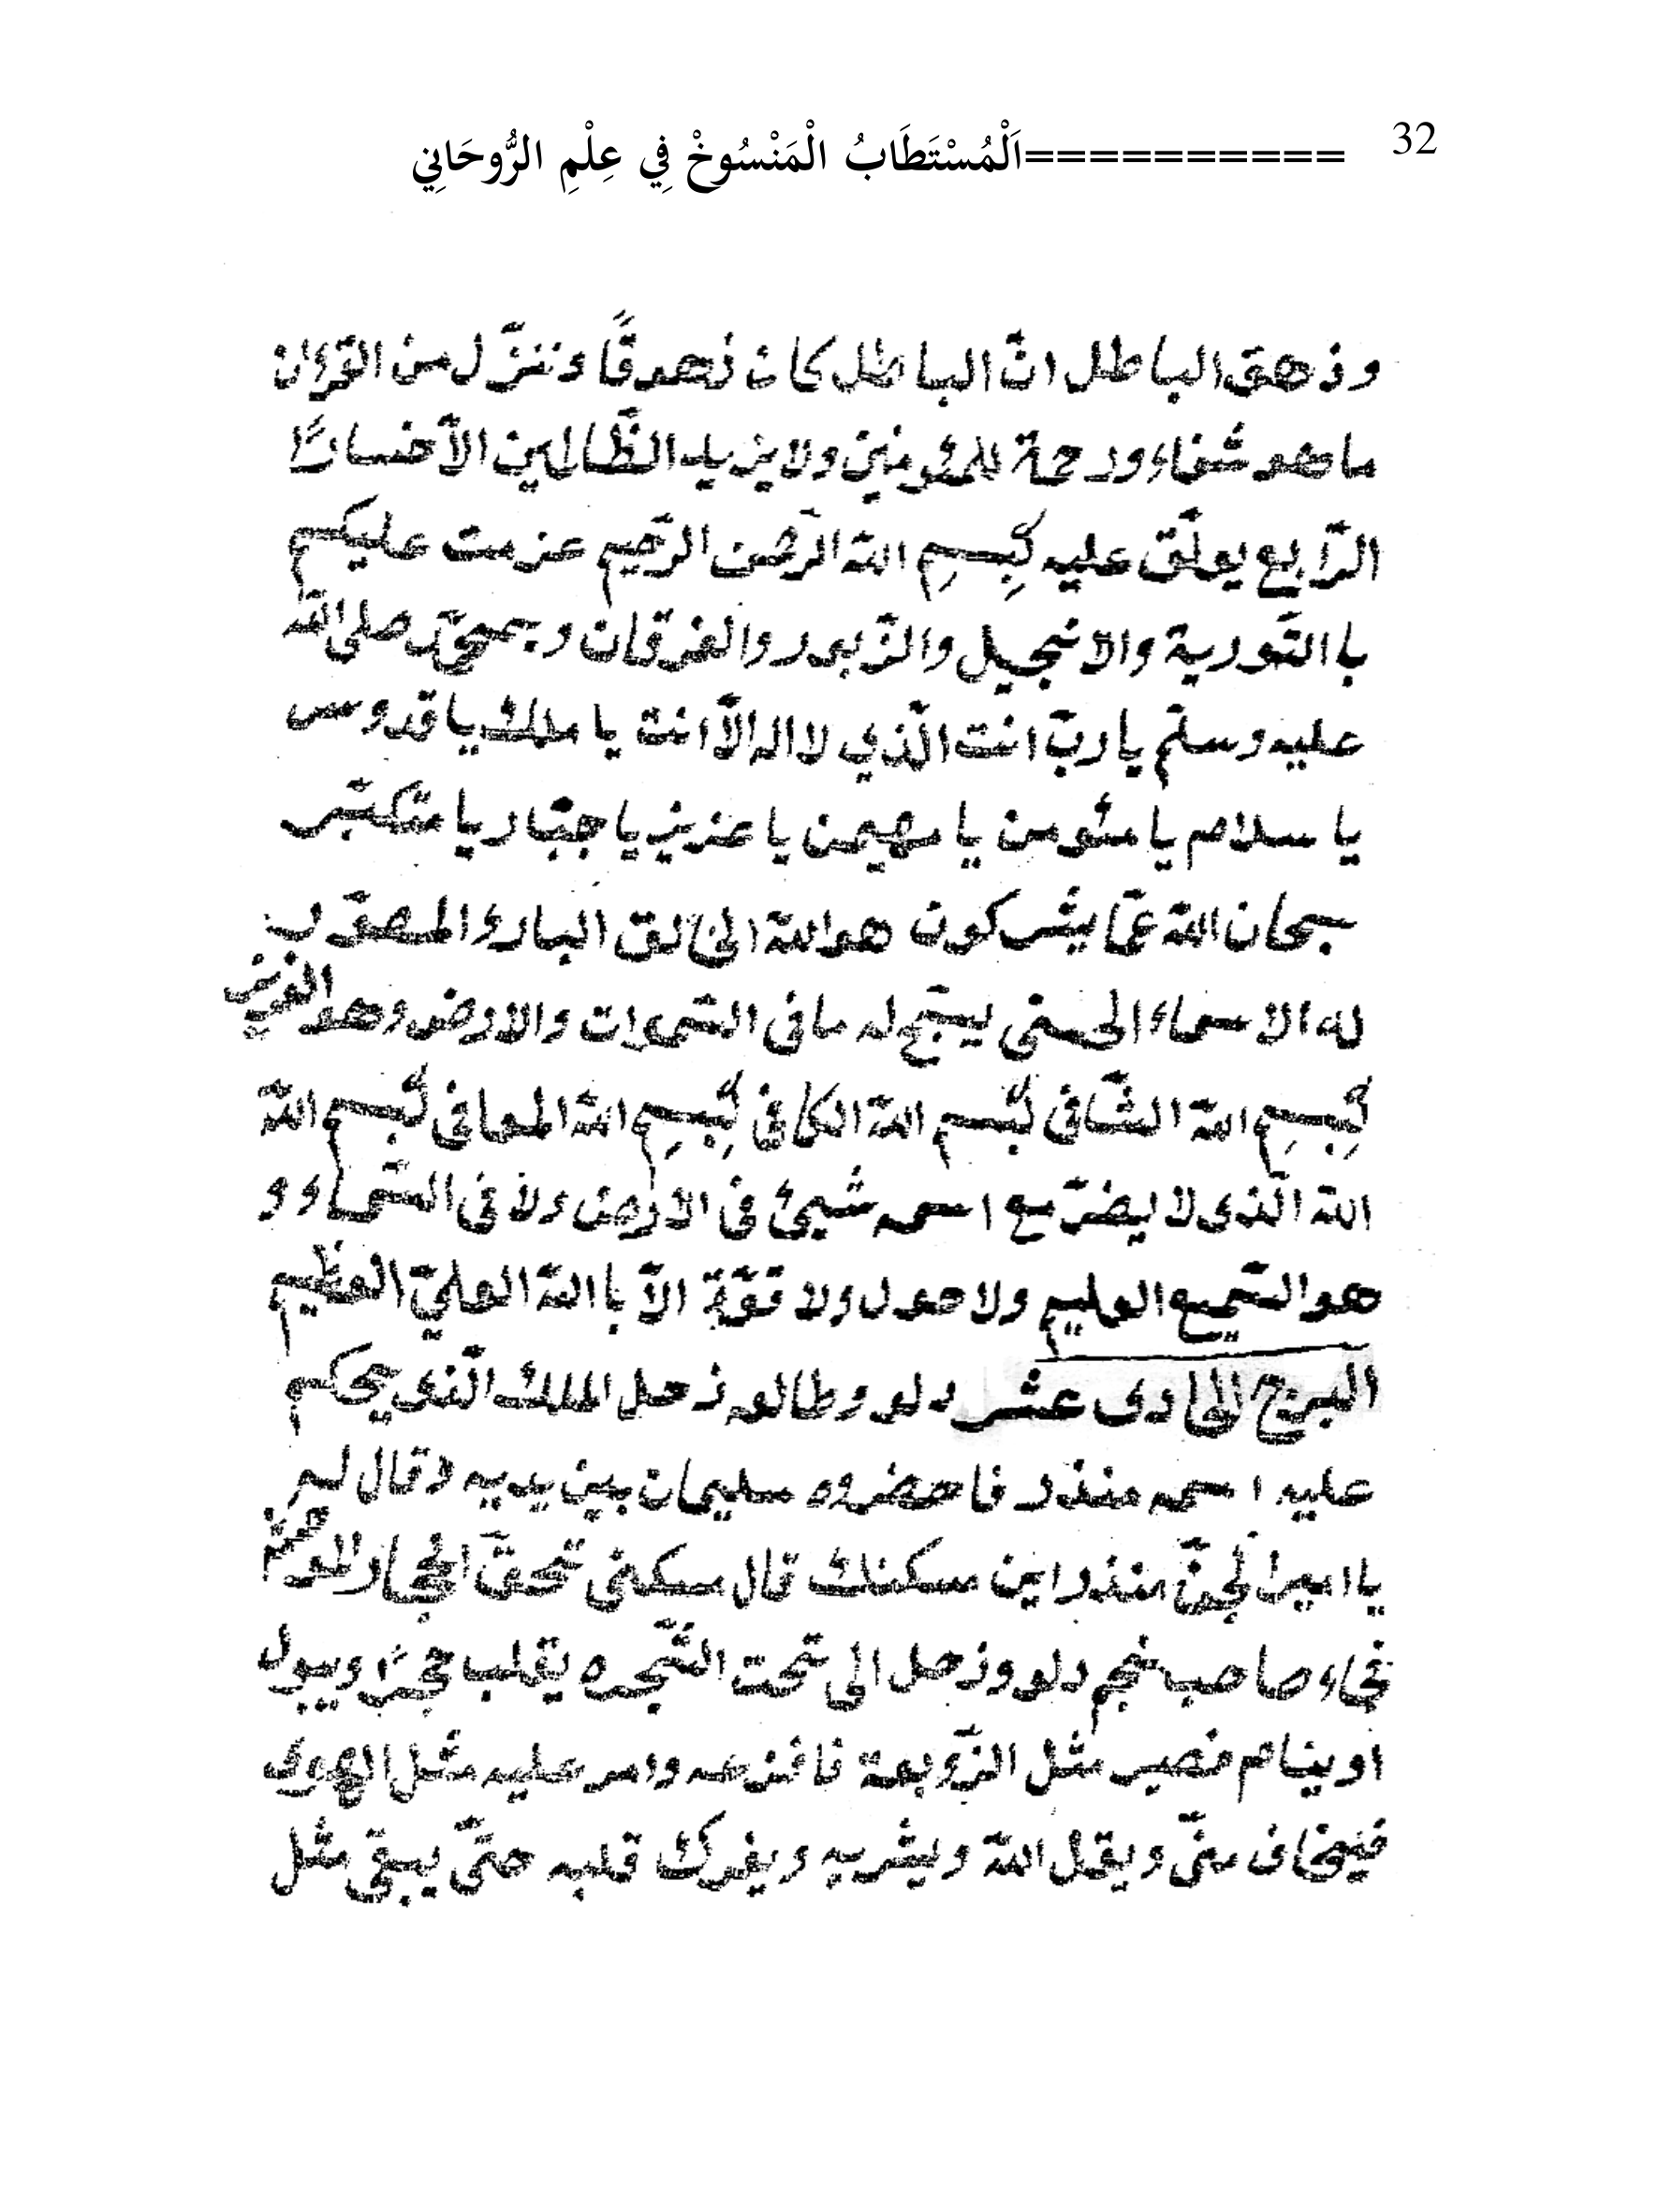 32 ==========اَلْمُسْتَطَابُ الْمَنْسُوخْ فِي عِلْمِ الرُّوحَانِي
وذهق الباطل انّ الباطل كان ذهوقًا وننزّل من القرءان
ما هو شفاء ورحمة للمؤمنين ولا يزيد الظّالمين الاّ خسارًا
الرّابع يعلّق عليه بِسِم اللّه الرّحمن الرّحيم عزمت عليكم
با التّورية والانجيل والزّبور والفرقان وبمحمّد صلى اللّه
عليه وسلّم يا ربّ انت الّذي لا اله الاّ انت يا ملك يا قدوس
يا سلام يا مئومن يا مهيمن يا عزيز يا جبّار يا متكبّر
سبحان اللّه عمّا يشركون هو اللّه الخالق البارء المصوّر
له الاسماء الحسنى يسبّح له ما فى السّموات والارض وهو العزيز
بِسِم اللّه الشّافى بسم اللّه الكافى بِسِم اللّه المعافى بسم اللّه
اللّه الّذى لا يضرّ مع اسمه شيئ فى الارض ولا فى السّماء و
هو السّميع العليم ولا حول ولا قوّة الاّ با اللّه العليّ العظيم
البرج الحادى عشر دلو وطالعه زحل الملك الّذى يحكم
عليه اسمه منذر فاحضروه سليمان بين يديه وقال له
يا امير الجنّ منذر اين مسكنك قال مسكنى تحت الحجار
فجاء صاحب نجم دلو وزحل الى تحت الشّجره يقلب حجرًا ويبول
او ينام فصير مثل الزّوبعة فافزعه وامر عليه مثل الهوى
فيخاف منّى ويقل اللّه ويشربه ويفرك قلبه حتّى يبقى مثل